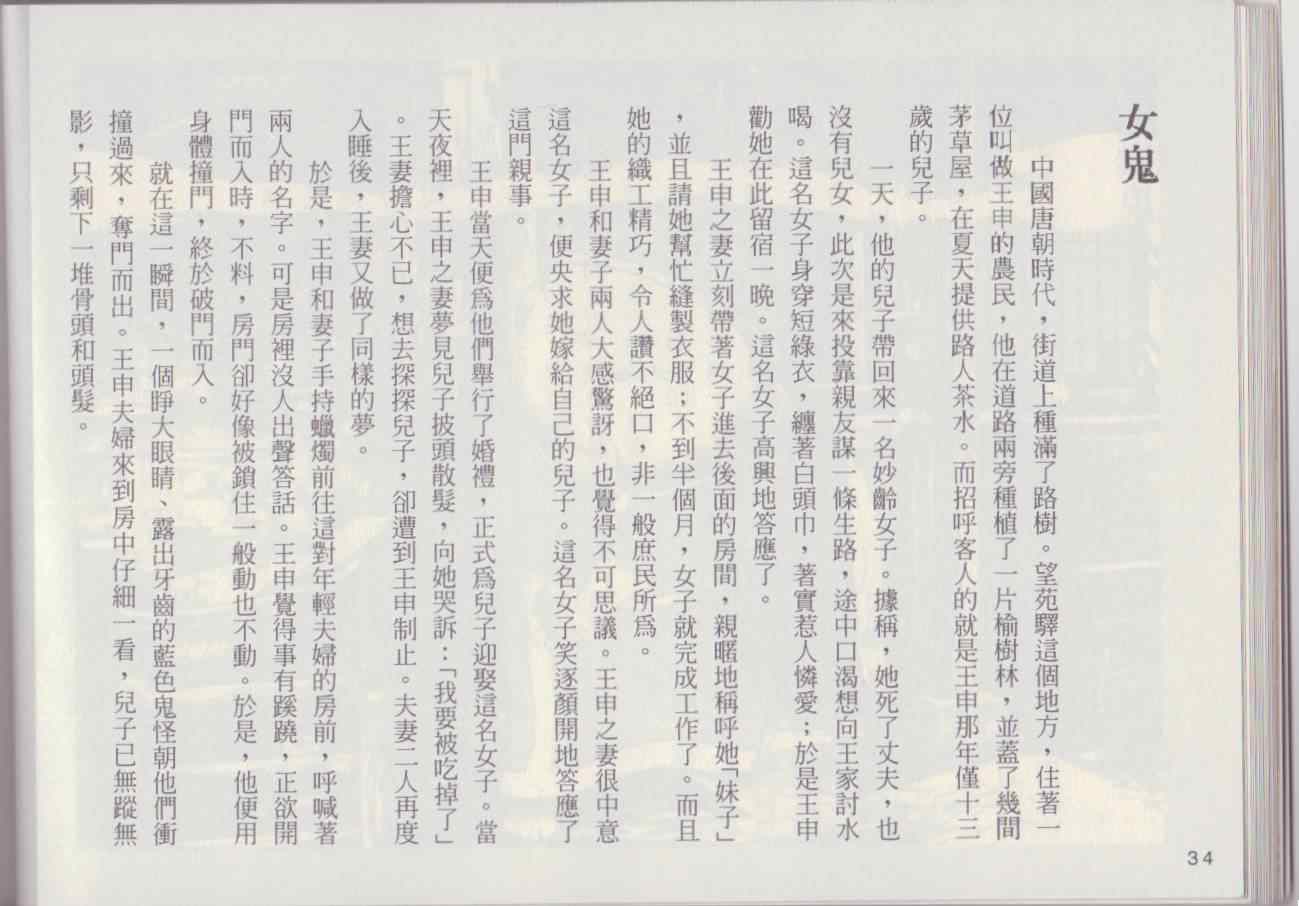 女鬼
中國唐朝時代，街道上種滿了路樹。望苑驛這個地方，住著一
位叫做王申的農民，他在道路兩旁種植了一片榆樹林，並蓋了幾間
茅草屋，在夏天提供路人茶水。而招呼客人的就是王申那年僅十三
歲的兒子。
一天，他的兒子帶回來一名妙齡女子。據稱，她死了丈夫，也
沒有兒女，此次是來投靠親友謀一條生路，途中口渴想向王家討水
喝。這名女子身穿短綠衣，纏著白頭巾，著實惹人憐愛；於是王申
勸她在此留宿一晚。這名女子高興地答應了。
王申之妻立刻帶著女子進去後面的房間，親暱地稱呼她「妹子」
，並且請她幫忙縫製衣服；不到半個月，女子就完成工作了。而且
她的織工精巧，令人讚不絕口，非一般庶民所爲。
王申和妻子兩人大感驚訝，也覺得不可思議。王申之妻很中意
這名女子，便央求她嫁給自己的兒子。這名女子笑逐顏開地答應了
這門親事。
王申當天便爲他們舉行了婚禮，正式爲兒子迎娶這名女子。當
天夜裡，王申之妻夢見兒子披頭散髮，向她哭訴：「我要被吃掉了」
。王妻擔心不已，想去探探兒子，卻遭到王申制止。夫妻二人再度
入睡後，王妻又做了同樣的夢。
於是，王申和妻子手持蠟燭前往這對年輕夫婦的房前，呼喊著
兩人的名字。可是房裡沒人出聲答話。王申覺得事有蹊蹺，正欲開
門而入時，不料，房門卻好像被鎖住一般動也不動。於是，他便用
身體撞門，終於破門而入。
就在這一瞬間，一個睜大眼睛、露出牙齒的藍色鬼怪朝他們衝
撞過來，奪門而出。王申夫婦來到房中仔細一看，兒子已無蹤無
影，只剩下一堆骨頭和頭髮。
34